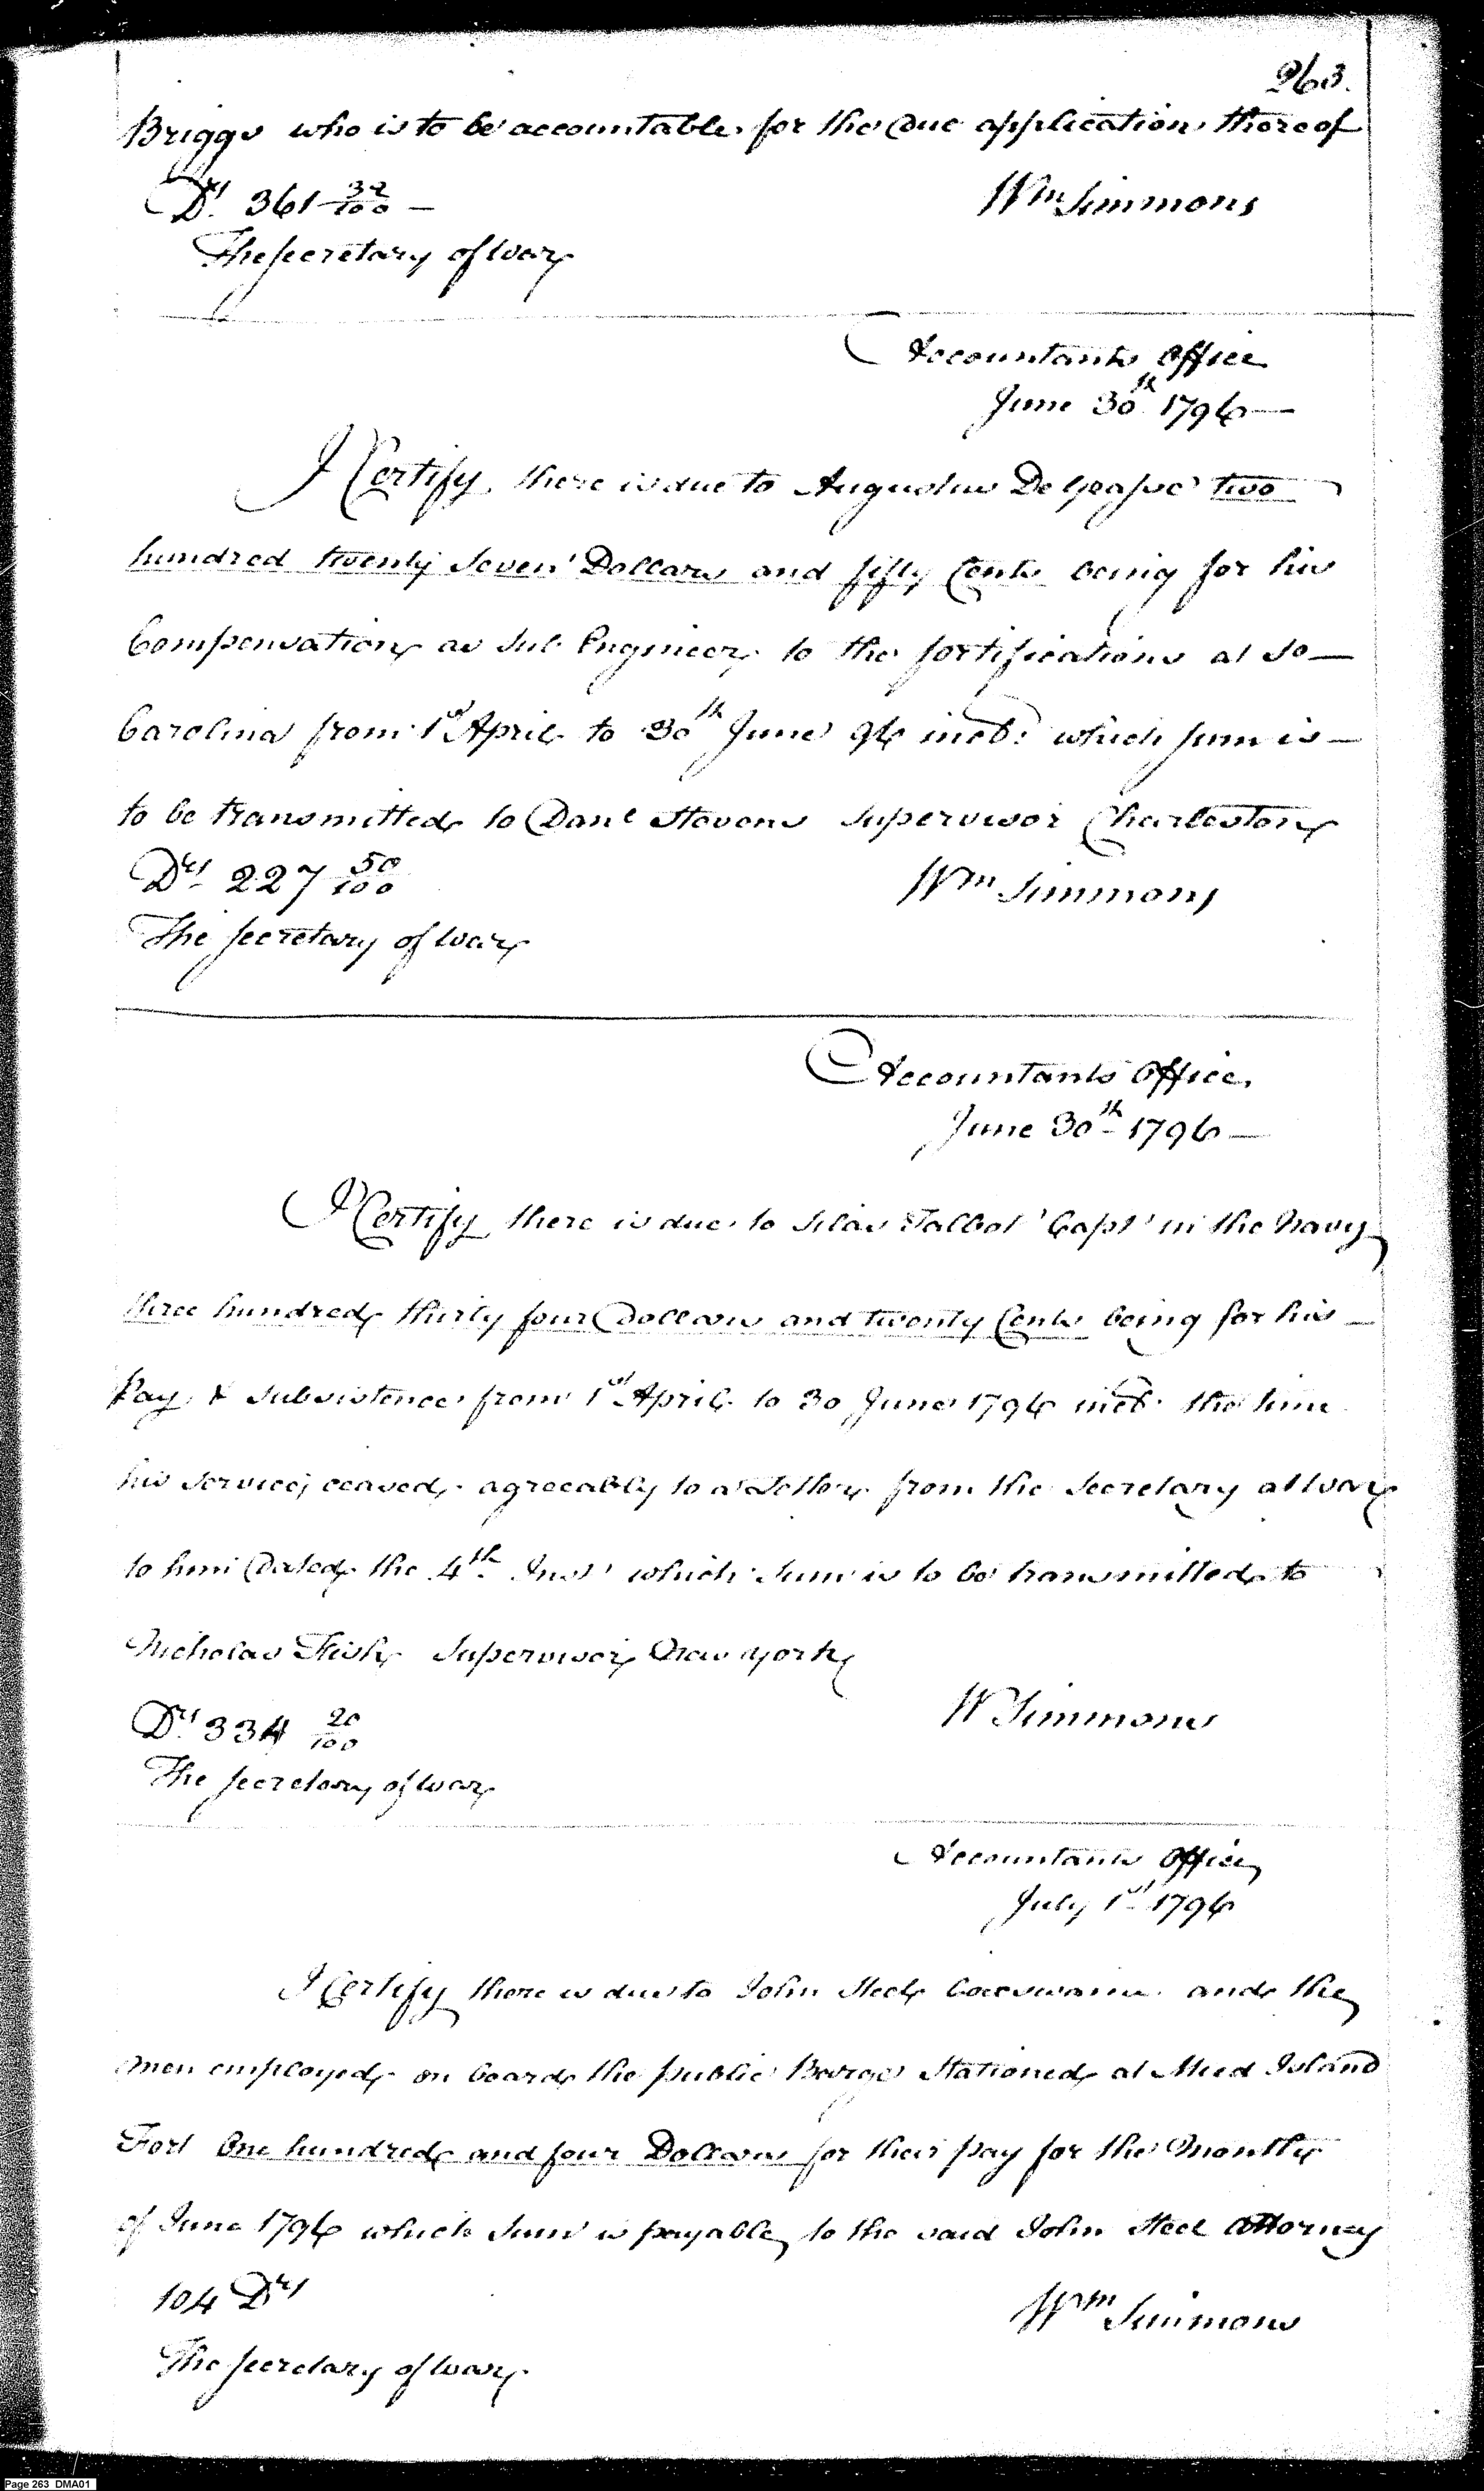 263.
Briggs who is to be accountable for the due application thereof
Drs. 361 32/100 —
Wm Simmons
The Secretary of War
Accountants Office
June 30th 1796 —
I Certify there is due to Augustus De Grasse two
hundred twenty Seven Dollars and fifty Cents being for his
Compensation as Sub Engineer to the fortifications at So —
Carolina from 1st April to 30th June 96 incl: which sum is —
to be transmitted to Danl Stevens Supervisor Charleston
Drs. 227 50/100
Wm Simmons
The Secretary of War
Accountants Office
June 30th 1796 —
I Certify there is due to Silas Talbot Capt in the Navy
three hundred thirty four Dollars and twenty Cents being for his —
Pay & Subsistence from 1st April to 30 June 1796 incl. the time
his services ceased, agreeably to a Letter from the Secretary at War
to him Dated the 4th Inst which Sum is to be transmitted to
Nicholas Fish Supervisor New York
Drs. 334 20/100
W Simmons
The Secretary of War
Accountants Office
July 1st 1796
I Certify there is due to John Steel Cocswain and the
men employed on board the public Barge Stationed at Mud Island
Fort One hundred and four Dollars for their pay for the Month
of June 1796 which Sum is payable to the said John Steel attorney
104 Drs
Wm Simmons
The Secretary of War
Page 263 DMA01